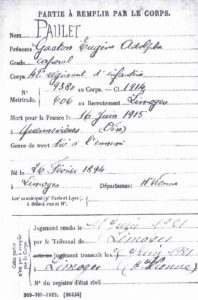 PARTIE À REMPLIR PAR LE CORPS.
Nom PAULET
Prénoms Gaston Eugène Adolphe
Grade caporal
Corps régiment d'infanterie
N° 9380 au Corps. — Cl. 1914
Matricule. 606 au Recrutement Limoges
Mort pour la France le 16 juin 1915
à Quennevières (Oise)
Genre de mort tué à l'ennemi
Né le 26 Février 1894
à Limoges Département Hte Vienne
Arr' municipal (p' Paris et Lyon),
à défaut rue et N°.
Cette partie n'est pas à remplir par le Corps.
Jugement rendu le
par le Tribunal de Limoges
jugement transcrit le
à Limoges (Hte Vienne)
N° du registre d'état civil